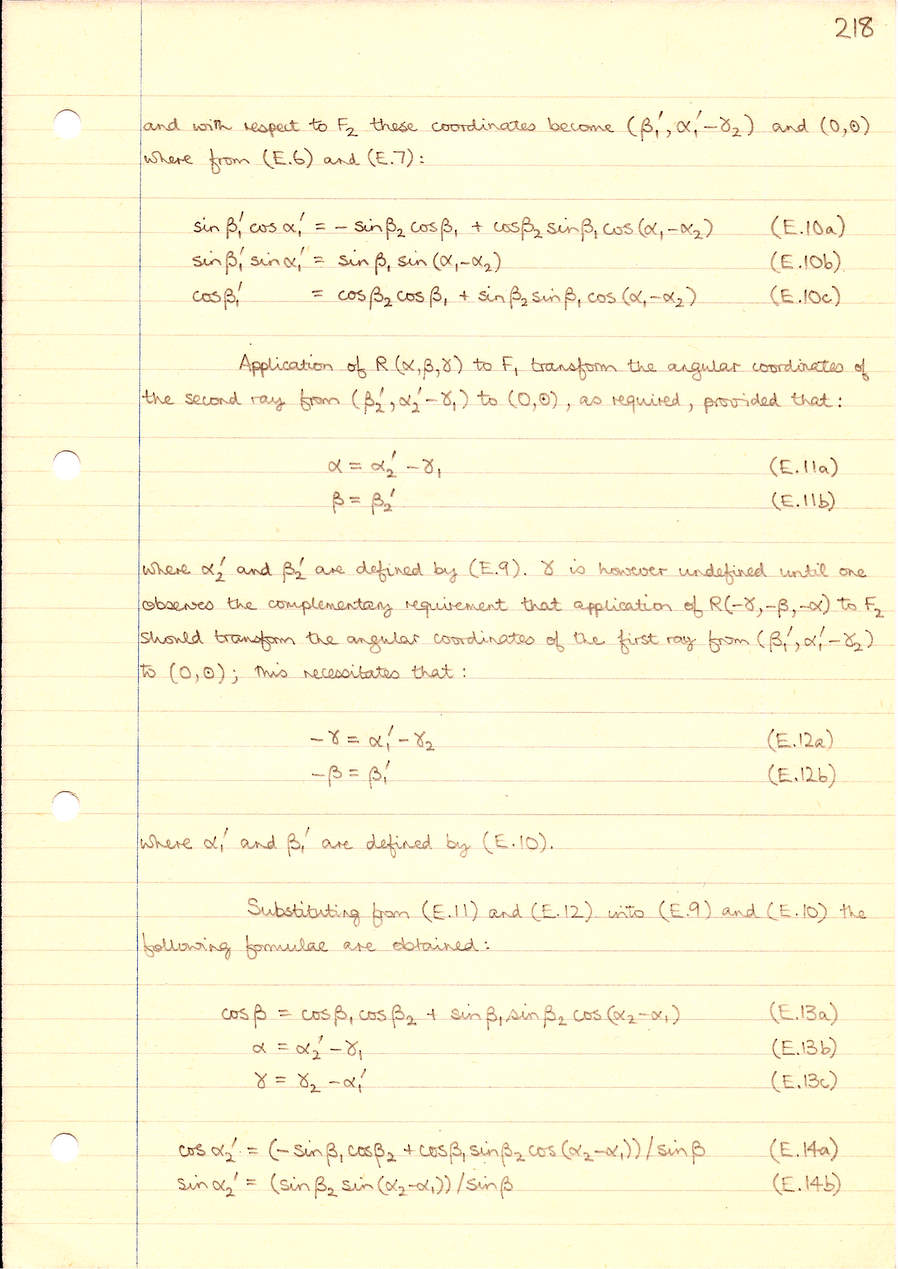 218
and with respect to F₂ these coordinates become (β₁′, α₁′−γ₂) and (0,Θ)
where from (E.6) and (E.7):
sin β₁′ cos α₁′ = − sin β₂ cos β₁ + cos β₂ sin β₁ cos (α₁−α₂) (E.10a)
sin β₁′ sin α₁′ = sin β₁ sin (α₁−α₂) (E.10b)
cos β₁′ = cos β₂ cos β₁ + sin β₂ sin β₁ cos (α₁−α₂) (E.10c)
Application of R (α,β,γ) to F₁ transform the angular coordinates of
the second ray from (β₂′, α₂′−γ₁) to (0,Θ), as required, provided that:
α = α₂′ − γ₁ (E.11a)
β = β₂′ (E.11b)
where α₂′ and β₂′ are defined by (E.9). γ is however undefined until one
observes the complementary requirement that application of R(−γ,−β,−α) to F₂
should transform the angular coordinates of the first ray from (β₁′, α₁′−γ₂)
to (0,Θ); this necessitates that:
−γ = α₁′ − γ₂ (E.12a)
−β = β₁′ (E.12b)
where α₁′ and β₁′ are defined by (E.10).
Substituting from (E.11) and (E.12) into (E.9) and (E.10) the
following formulae are obtained:
cos β = cos β₁ cos β₂ + sin β₁ sin β₂ cos (α₂−α₁) (E.13a)
α = α₂′ − γ₁ (E.13b)
γ = γ₂ − α₁′ (E.13c)
cos α₂′ = (− sin β₁ cos β₂ + cos β₁ sin β₂ cos (α₂−α₁)) / sin β (E.14a)
sin α₂′ = (sin β₂ sin (α₂−α₁)) / sin β (E.14b)